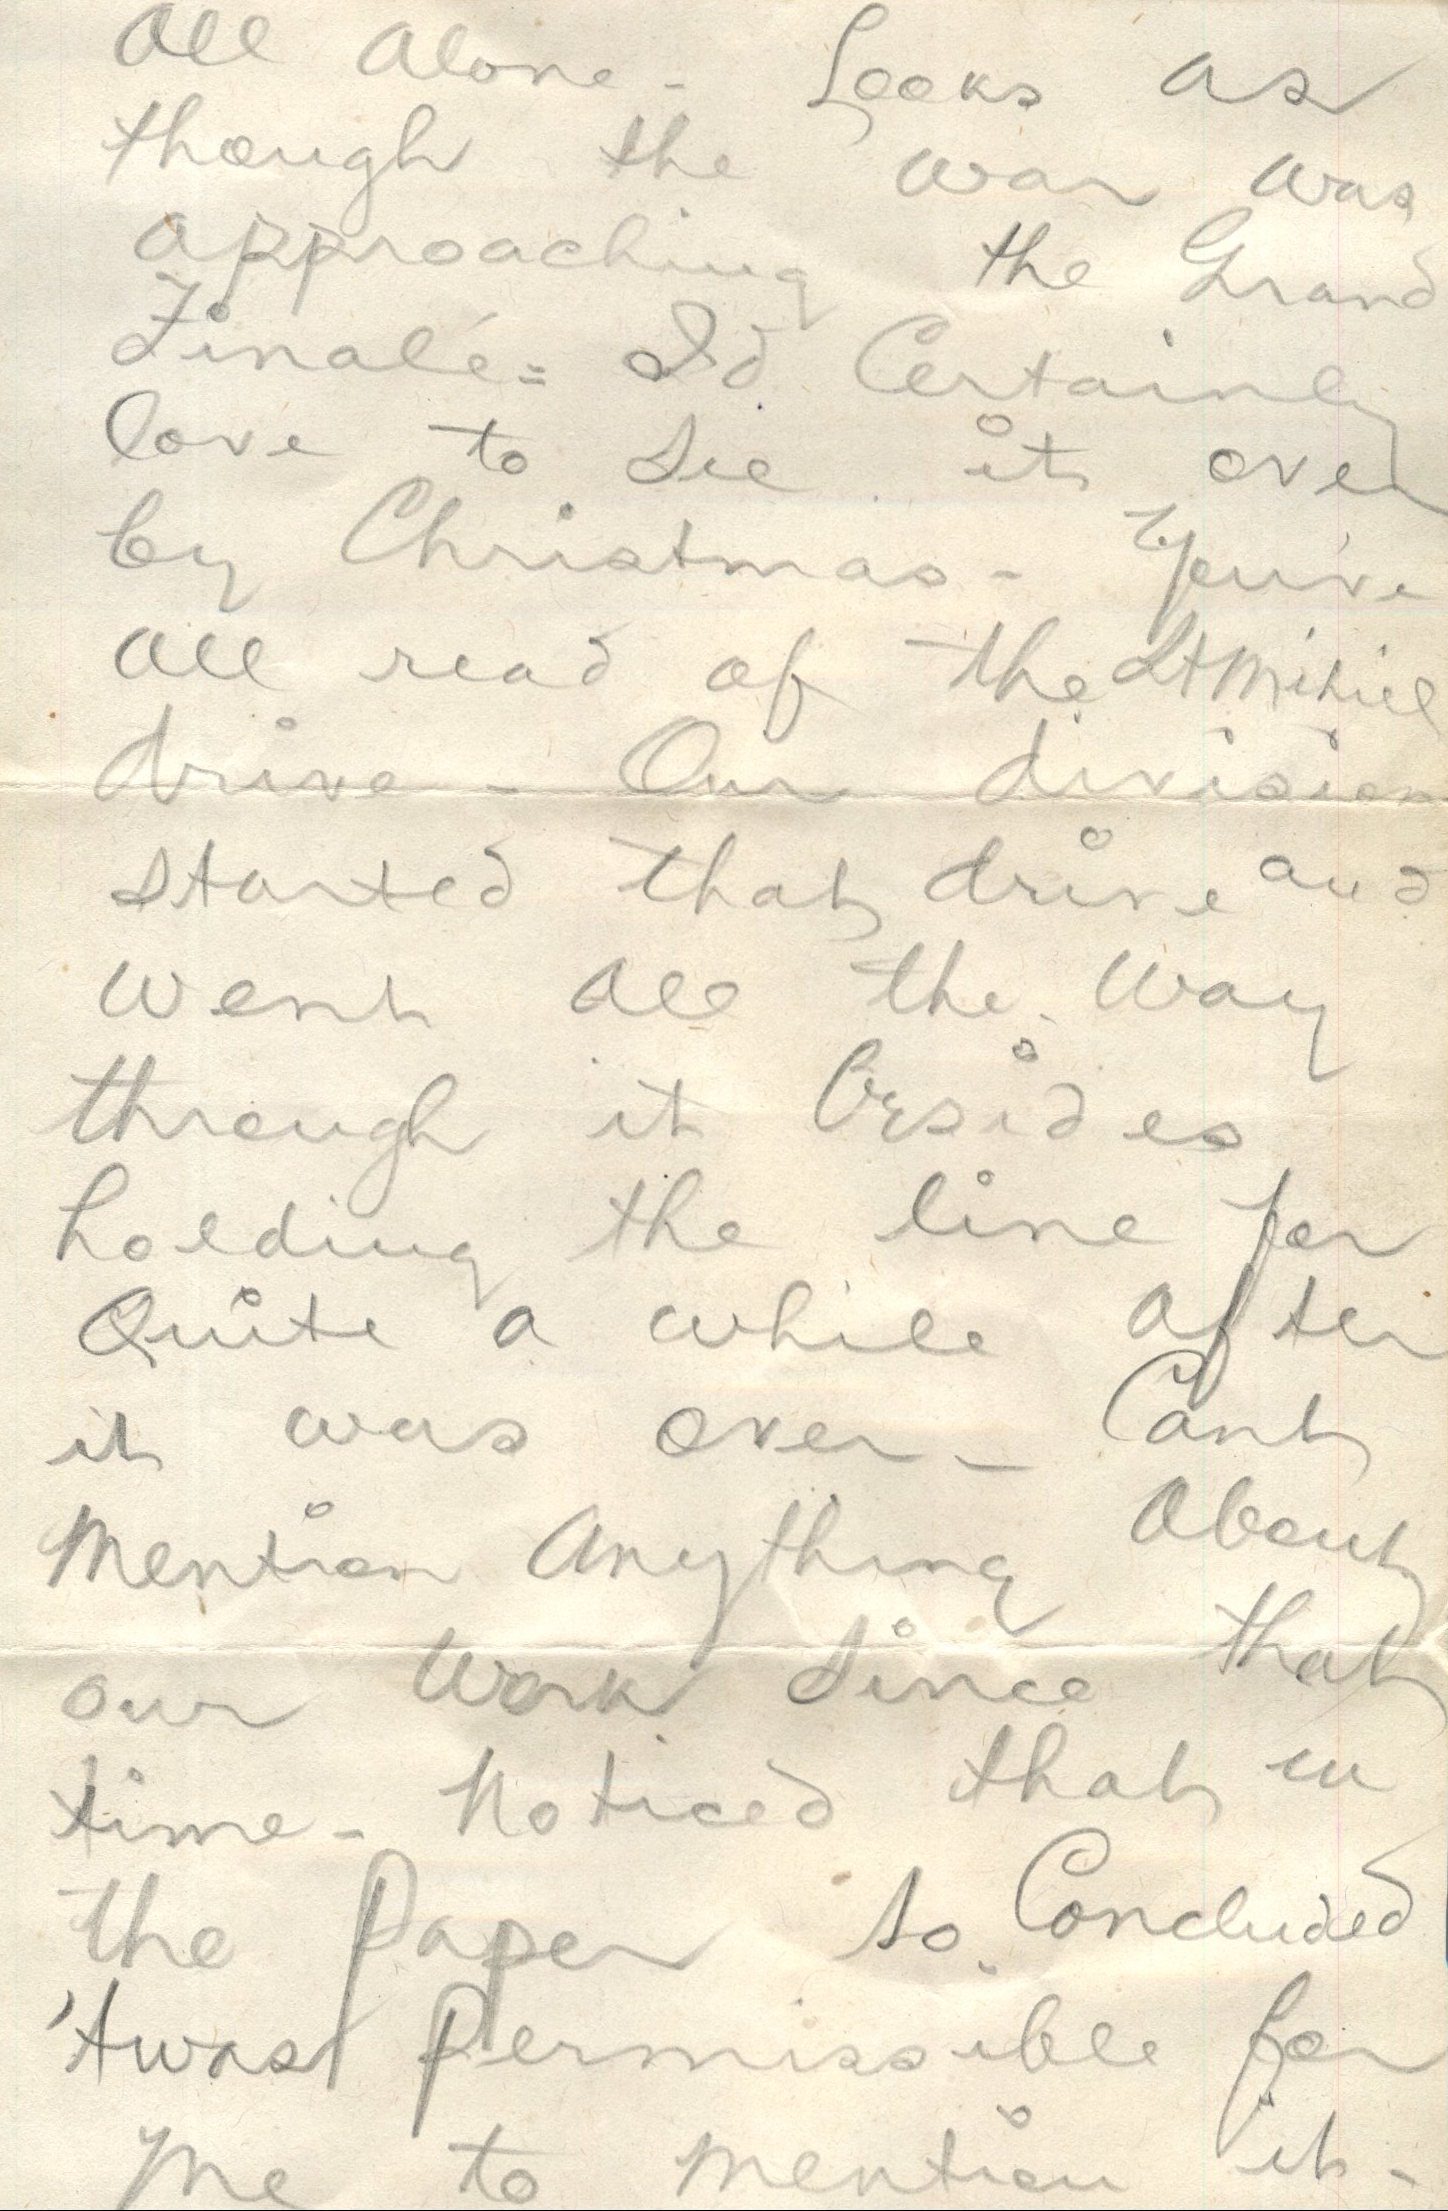 All Alone - Looks as
though the war was
approaching the Grand
Finalé = I'd Certainly
love to see it over
by Christmas - You've
All read of the St Mihiel
drive - Our division
started that drive and
went All the Way
through it besides
holding the line for
Quite a while After
it was over - Cant
Mention Anything About
our Work Since that
time - Noticed that in
the Paper so Concluded
'twas Permissible for
Me to Mention it -